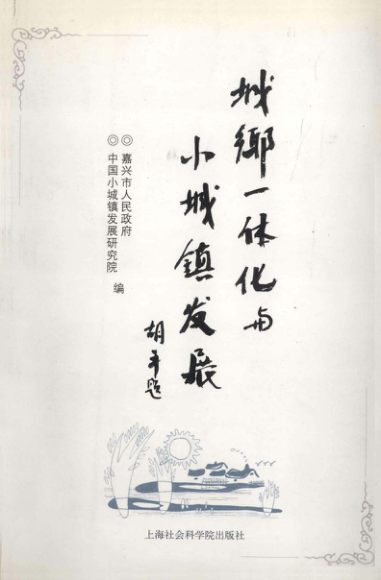 城鄉一体化与
小城鎮发展
胡平题
◎嘉兴市人民政府
◎中国小城镇发展研究院 编
上海社会科学院出版社